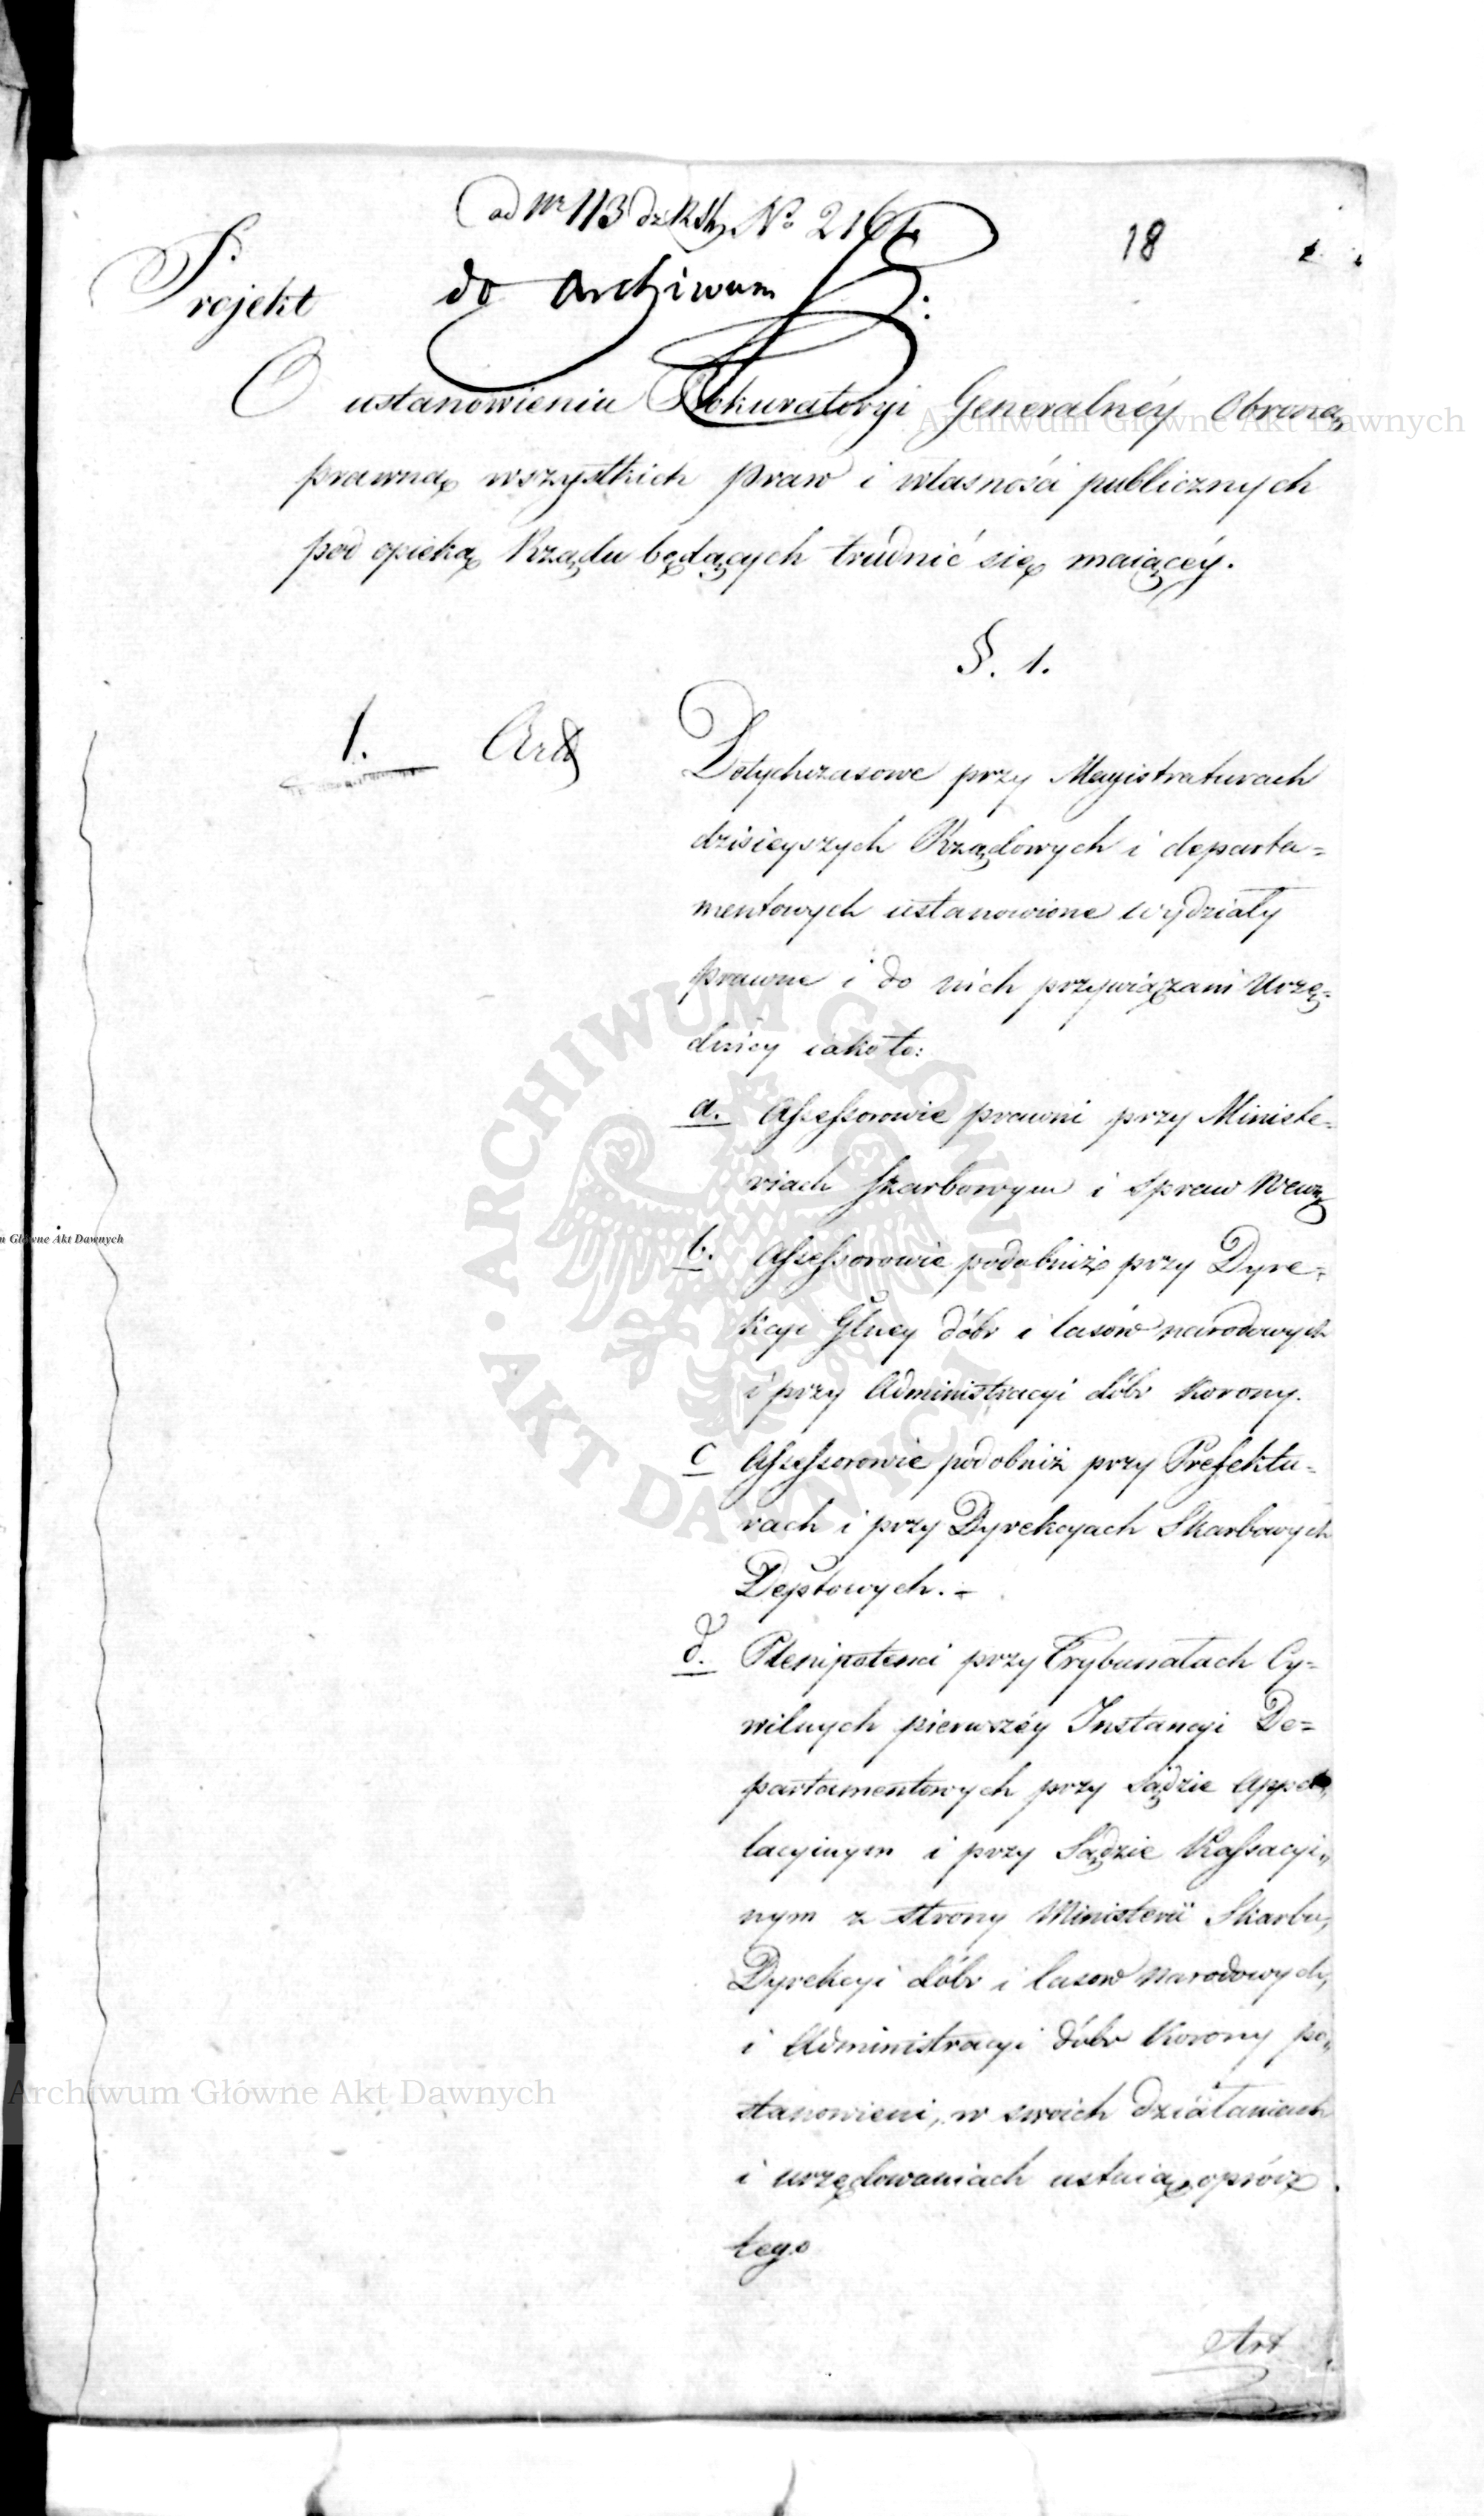 ad Nr 113 dz R Sk, No 2161
18
Projekt
do Archiwum
O ustanowieniu Prokuratoryi Generalnéy Obroną
prawną wszystkich praw i własności publicznych
pod opieką Rządu będących trudnić się maiącéy.
§. 1.
1. Art
Dotychczasowe przy Magistraturach
dzisieyszych Rządowych i departa=
mentowych ustanowione wydziały
prawne i do nich przywiązani Urzę=
dnicy iako to:
a. Assessorowie prawni przy Ministe=
riach skarbowym i spraw Wewn
b. Assessorowie podobniż przy Dyre=
kcyi Głney dóbr i lasów narodowych
i przy Administracyi dóbr Korony.
c Assessorowie podobniż przy Prefektu=
rach i przy Dyrekcyach Skarbowych
Deptowych. -
d. Plenipotenci przy Trybunałach Cy=
wilnych pierwszéy Instancyi De=
partamentowych przy Sądzie Appel=
lacyinym i przy Sądzie Kassacyi=
nym z strony Ministerii Skarbu,
Dyrekcyi dóbr i lasow Narodowych,
i Administracyi dóbr Korony po=
stanowieni, w swoich działaniach
i urzędowaniach ustaią, oprócz
tego
Art
Archiwum Główne Akt Dawnych
ARCHIWUM GŁÓWNE AKT DAWNYCH
m Główne Akt Dawnych
Archiwum Główne Akt Dawnych